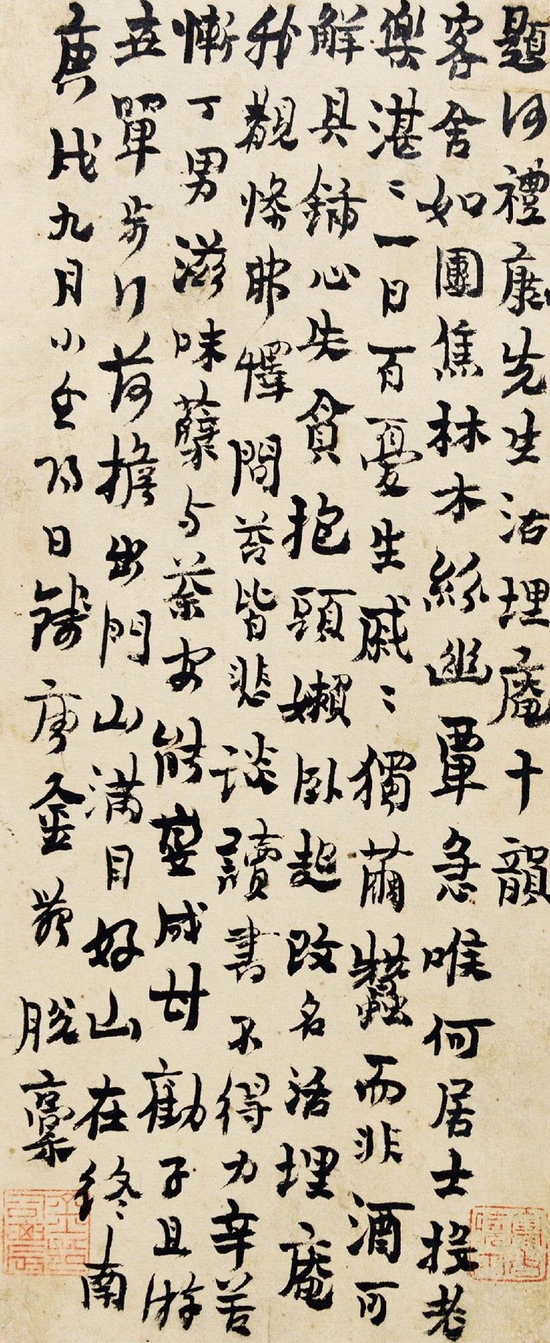 題何禮康先生活埋庵十韻
客舍如團焦林木絲幽覃急喉何居士投老
樂湛〻一日百憂生戚〻獨繭蠶而非酒可
解具鍤心失貪抱頭嬾卧起改名活埋庵
我覯慘弗懌問荅皆悲談讀書不得力辛苦
慚丁男滋味蘗与荼安能變成甘勸子且游
五單步行荷擔出門山滿目好山在終南
庚戌九月小重陽日錢唐金農脫稾